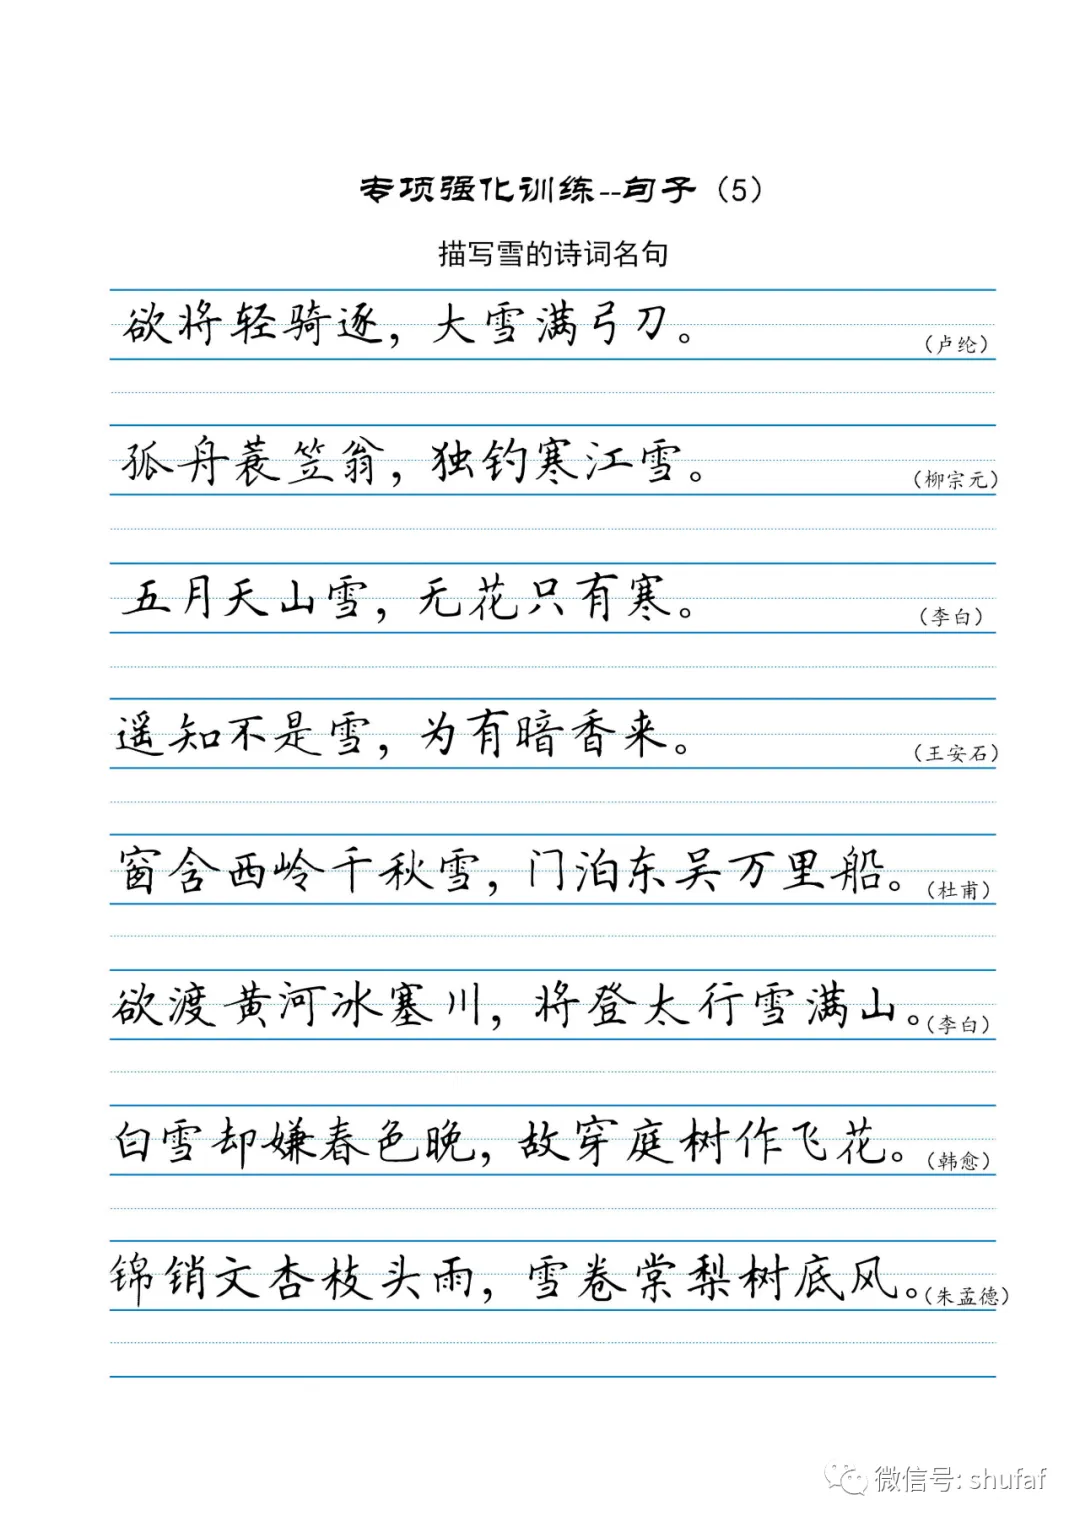 专项强化训练--句子（5）
描写雪的诗词名句
欲将轻骑逐，大雪满弓刀。（卢纶）
孤舟蓑笠翁，独钓寒江雪。（柳宗元）
五月天山雪，无花只有寒。（李白）
遥知不是雪，为有暗香来。（王安石）
窗含西岭千秋雪，门泊东吴万里船。（杜甫）
欲渡黄河冰塞川，将登太行雪满山。（李白）
白雪却嫌春色晚，故穿庭树作飞花。（韩愈）
锦销文杏枝头雨，雪卷棠梨树底风。（朱孟德）
微信号: shufaf